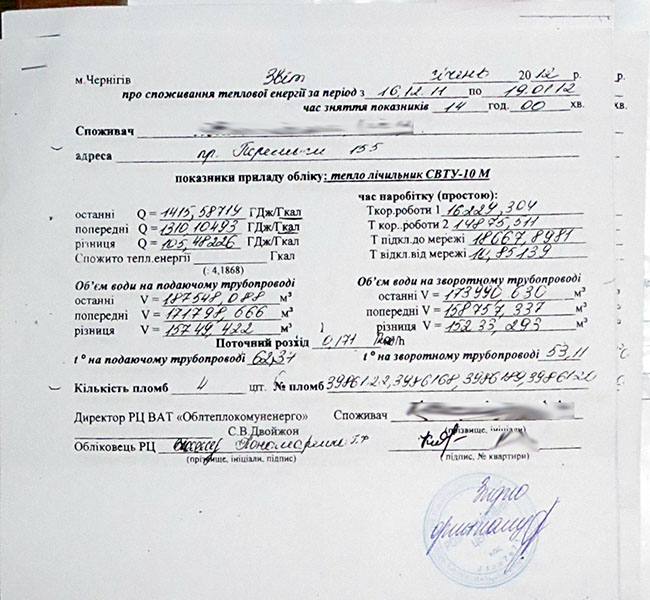 м.Чернігів Звіт січень 2012 р.
про споживання теплової енергії за період з 16.12.11 по 19.01.12
час зняття показників 14 год. 00 хв.
Споживач
адреса пр. Перемоги 155
показники приладу обліку: тепло лічильник СВТУ-10 М
час наробітку (простою):
останні Q = 1415,58714 ГДж/Гкал Т кор.роботи 1 16229,304
попередні Q = 1310,10493 ГДж/Гкал Т кор..роботи 2 14875,511
різниця Q = 105,48226 ГДж/Гкал Т підкл.до мережі 18667,8981
Спожито тепл.енергії Гкал Т відкл.від мережі 10,85139
(: 4,1868)
Об'єм води на подаючому трубопроводі Об'єм води на зворотному трубопроводі
останні V = 187548,088 м³ останні V = 173990,630 м³
попередні V = 171798,666 м³ попередні V = 158757,337 м³
різниця V = 15749,422 м³ різниця V = 15233,293 м³
Поточний розхід 0,171 /h
t° на подаючому трубопроводі 62,31 t° на зворотному трубопроводі 53,11 °С
Кількість пломб 4 шт. № пломб 3986122, 3986168, 3986189, 3986120
Директор РЦ ВАТ «Облтеплокомуненерго» Споживач
С.В.Двойжон (прізвище, ініціали)
Обліковець РЦ Пономаренко Г.Ф.
(прізвище, ініціали, підпис) ( підпис, № квартири)
Згідно
оригіналу